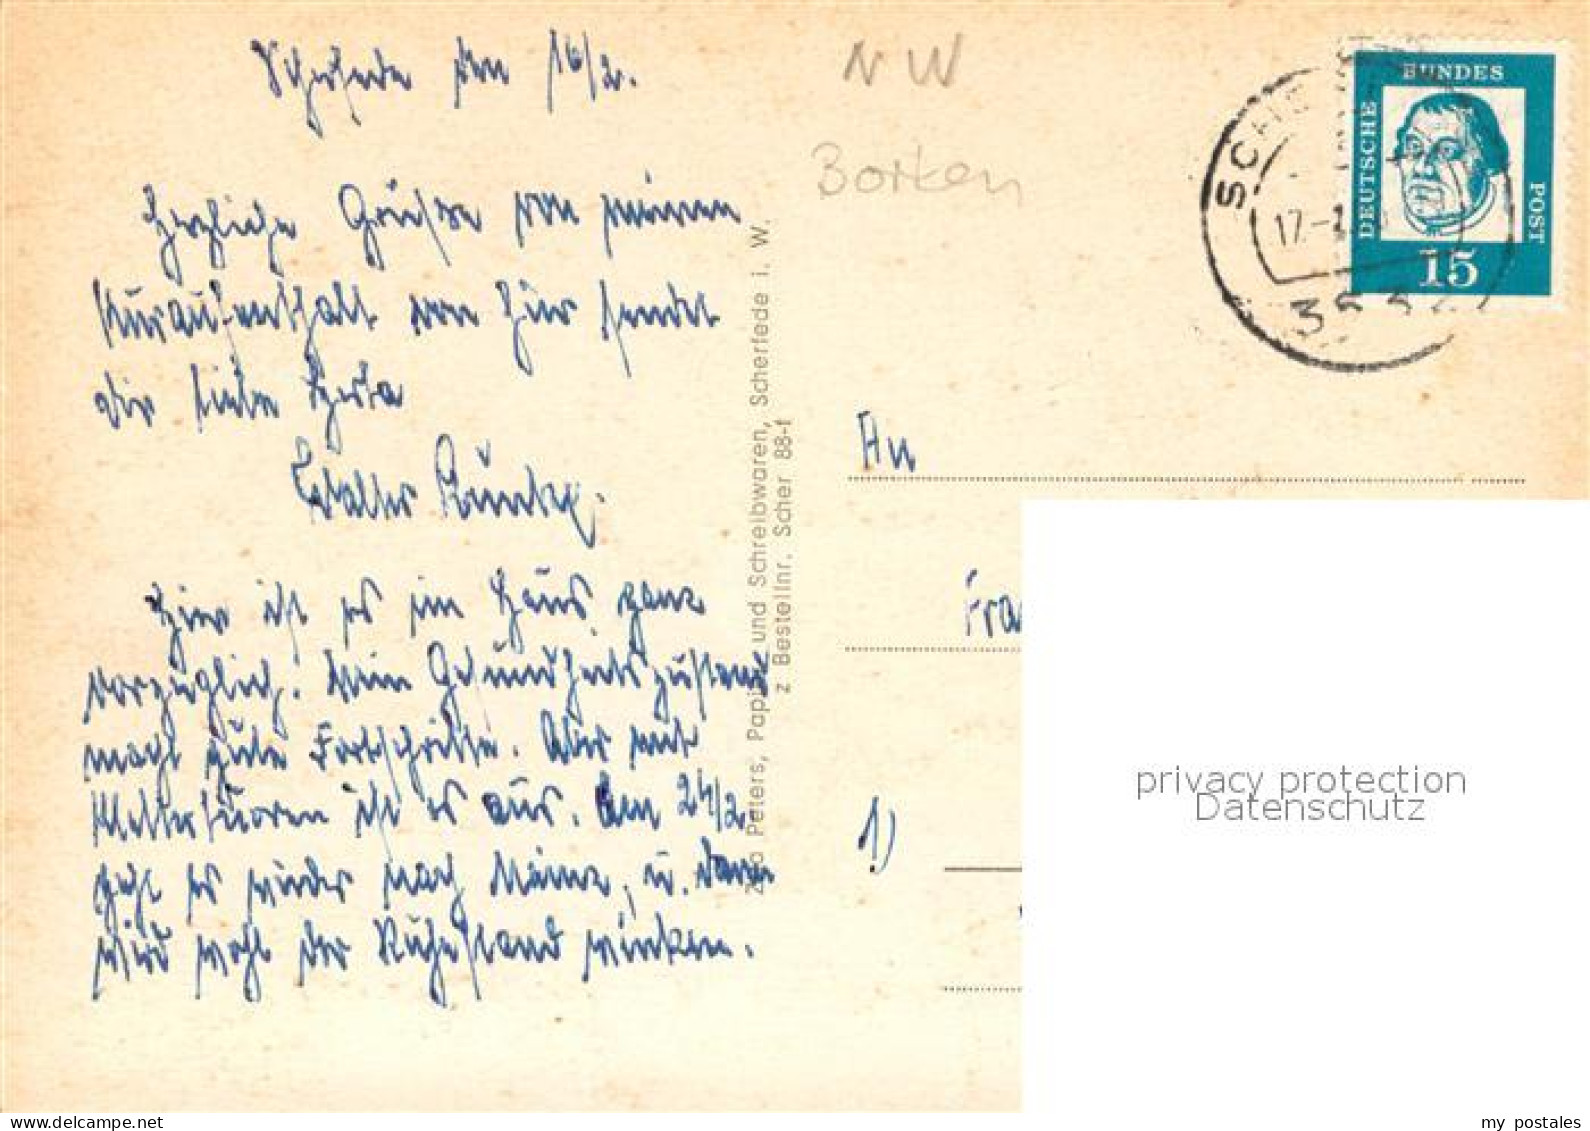 Scherfede den 16/2.
Herzliche Grüße von meinem
Kuraufenthalt von hier sendet
dir liebe Herta
Walter
Hier ist es im Haus ganz
vorzüglich. Mein Gesundheitszustand
macht gute Fortschritte. Aber mit
ist es aus. Am 24/2.
geht es wieder nach Mainz, u. dann
wird wohl der Ruhestand winken.
Zita Peters, Papier und Schreibwaren, Scherfede i. W.
z Bestellnr. Scher 88-f
NW
Borken
BUNDES
DEUTSCHE
POST
15
SCHE
17.-2.
An
Fra
1)
privacy protection
Datenschutz
my postales